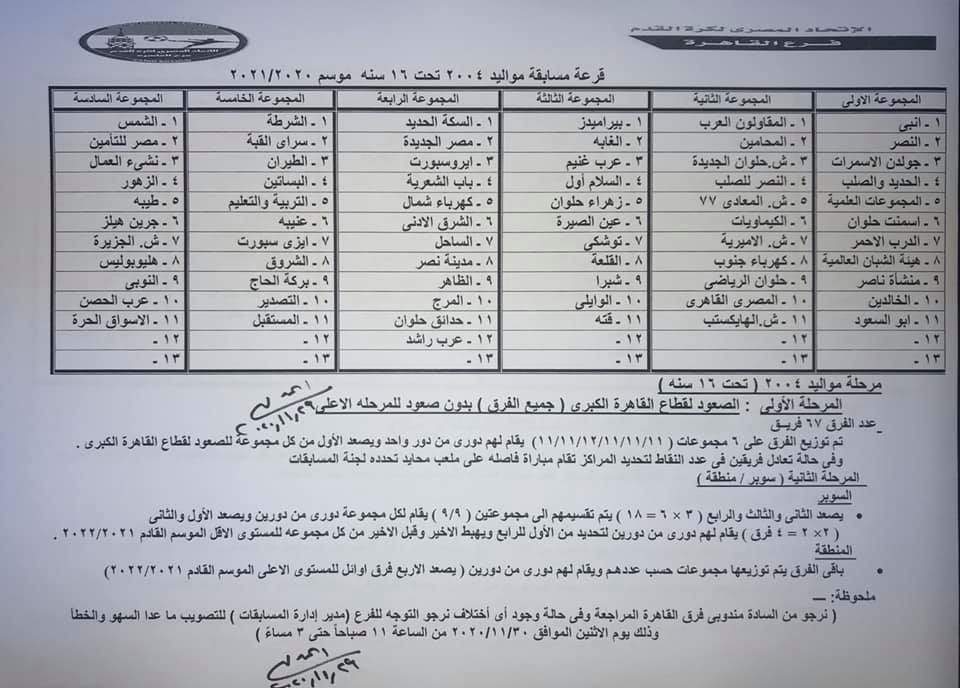 الإتحاد المصرى لكرة القدم
فرع القاهرة
قرعة مسابقة مواليد ٢٠٠٤ تحت ١٦ سنه موسم ٢٠٢١/٢٠٢٠
المجموعة الاولى | المجموعة الثانية | المجموعة الثالثة | المجموعة الرابعة | المجموعة الخامسة | المجموعة السادسة
١ - انبى | ١ - المقاولون العرب | ١ - بيراميدز | ١ - السكة الحديد | ١ - الشرطة | ١ - الشمس
٢ - النصر | ٢ - المحامين | ٢ - الغابه | ٢ - مصر الجديدة | ٢ - سراى القبة | ٢ - مصر للتأمين
٣ - جولدن الاسمرات | ٣ - ش.حلوان الجديدة | ٣ - عرب غنيم | ٣ - ايروسبورت | ٣ - الطيران | ٣ - نشىء العمال
٤ - الحديد والصلب | ٤ - النصر للصلب | ٤ - السلام أول | ٤ - باب الشعرية | ٤ - البساتين | ٤ - الزهور
٥ - المجموعات العلمية | ٥ - ش. المعادى ٧٧ | ٥ - زهراء حلوان | ٥ - كهرباء شمال | ٥ - التربية والتعليم | ٥ - طيبه
٦ - اسمنت حلوان | ٦ - الكيماويات | ٦ - عين الصيرة | ٦ - الشرق الادنى | ٦ - عنيبه | ٦ - جرين هيلز
٧ - الدرب الاحمر | ٧ - ش. الاميرية | ٧ - توشكي | ٧ - الساحل | ٧ - ايزى سبورت | ٧ - ش. الجزيرة
٨ - هيئة الشبان العالمية | ٨ - كهرباء جنوب | ٨ - القلعة | ٨ - مدينة نصر | ٨ - الشروق | ٨ - هليوبوليس
٩ - منشأة ناصر | ٩ - حلوان الرياضى | ٩ - شبرا | ٩ - الظاهر | ٩ - بركة الحاج | ٩ - النوبي
١٠ - الخالدين | ١٠ - المصرى القاهرى | ١٠ - الوايلى | ١٠ - المرج | ١٠ - التصدير | ١٠ - عرب الحصن
١١ - ابو السعود | ١١ - ش.الهايكستب | ١١ - قته | ١١ - حدائق حلوان | ١١ - المستقبل | ١١ - الاسواق الحرة
١٢ - | ١٢ - | ١٢ - | ١٢ - عرب راشد | ١٢ - | ١٢ -
١٣ - | ١٣ - | ١٣ - | ١٣ - | ١٣ - | ١٣ -
مرحلة مواليد ٢٠٠٤ ( تحت ١٦ سنه )
المرحلة الأولى : الصعود لقطاع القاهرة الكبرى ( جميع الفرق ) بدون صعود للمرحله الاعلى
عدد الفرق ٦٧ فريق
تم توزيع الفرق على ٦ مجموعات ( ١١/١١/١٢/١١/١١/١١) يقام لهم دورى من دور واحد ويصعد الأول من كل مجموعة للصعود لقطاع القاهرة الكبرى .
وفى حالة تعادل فريقين فى عدد النقاط لتحديد المراكز تقام مباراة فاصله على ملعب محايد تحدده لجنة المسابقات
المرحلة الثانية ( سوبر / منطقة )
السوبر
• يصعد الثانى والثالث والرابع ( ٣ × ٦ = ١٨ ) يتم تقسيمهم الى مجموعتين ( ٩/٩ ) يقام لكل مجموعة دورى من دورين ويصعد الأول والثانى
( ٢× ٢ = ٤ فرق ) يقام لهم دورى من دورين لتحديد من الأول للرابع ويهبط الاخير وقبل الاخير من كل مجموعه للمستوى الاقل الموسم القادم ٢٠٢٢/٢٠٢١ .
المنطقة
• باقى الفرق يتم توزيعها مجموعات حسب عددهم ويقام لهم دورى من دورين ( يصعد الاربع فرق اوائل للمستوى الاعلى الموسم القادم ٢٠٢٢/٢٠٢١)
ملحوظة: ــ
( نرجو من السادة مندوبى فرق القاهرة المراجعة وفى حالة وجود أى أختلاف نرجو التوجه للفرع (مدير إدارة المسابقات ) للتصويب ما عدا السهو والخطأ
وذلك يوم الاثنين الموافق ٢٠٢٠/١١/٣٠ من الساعة ١١ صباحاً حتى ٣ مساءً )